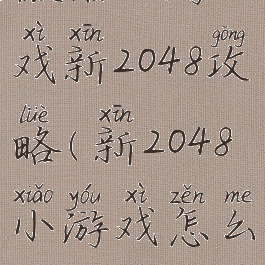 xì xīn gōng
戏新2048攻
lüè xīn
略(新2048
xiǎo yóu xì zěn me
小游戏怎么